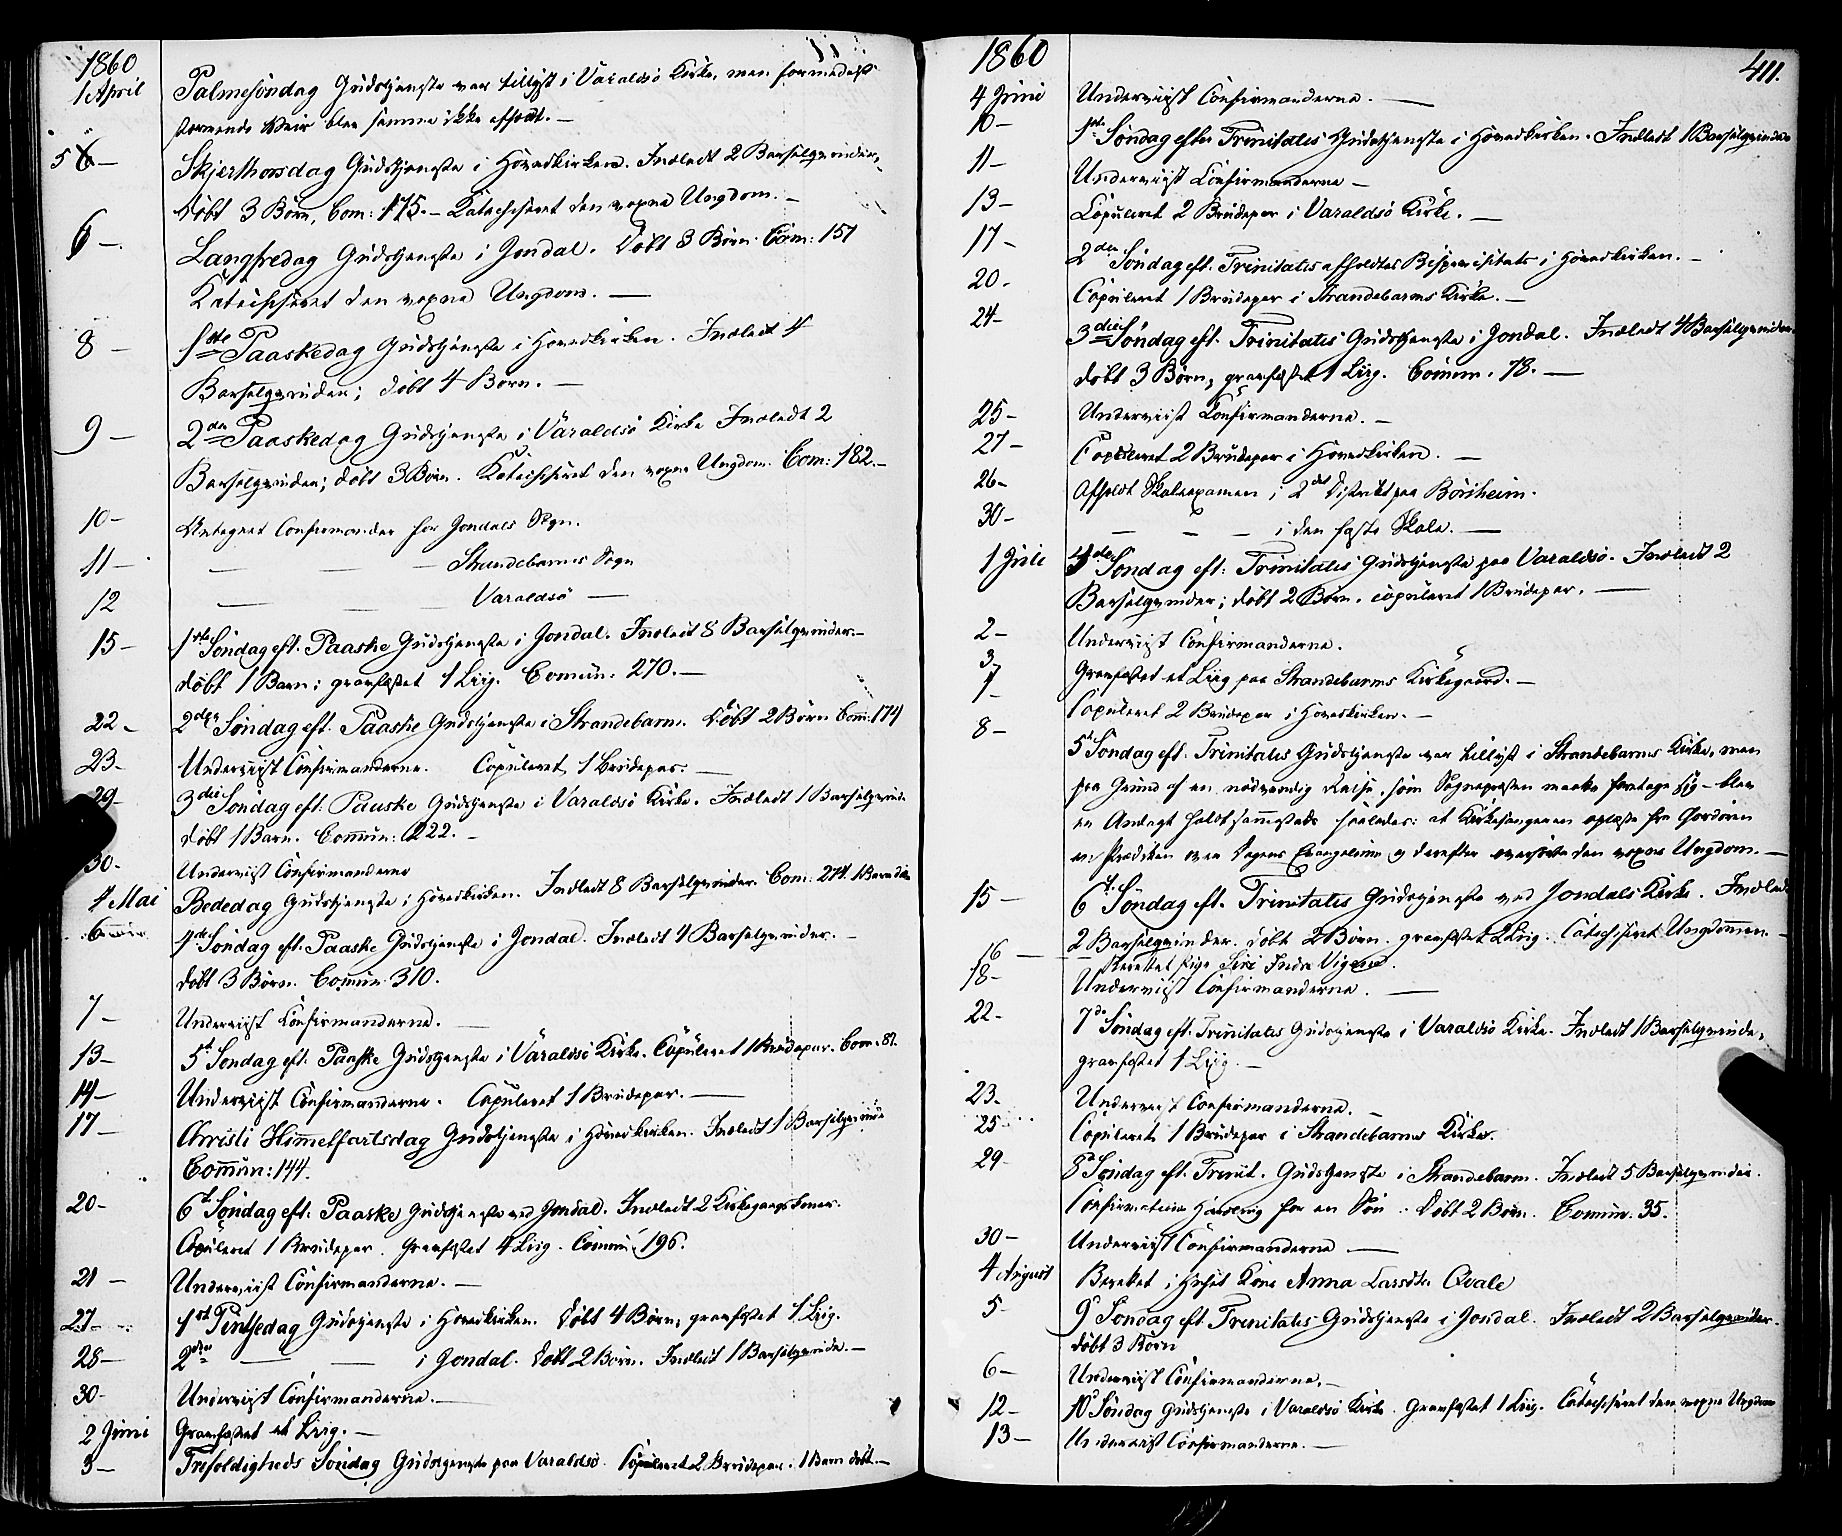 1860
1 April Palmesöndag Gudstjeneste var tillyst i Varaldsö Kirke, men formedelst
stormende Veir blev samme ikke afholdt. —
5 — Skjerthorsdag Gudstjeneste i Hovedkirken. Indledt 2 Barselqvinder,
döbt 3 Börn, Com: 175. — Katechiseret den voxne Ungdom. —
6 — Langfredag Gudstjeneste i Jondal. Döbt 3 Börn. Com: 151
Katechiseret den voxne Ungdom. —
8 — 1ste Paaskedag Gudstjeneste i Hovedkirken. Indledt 4
Barselqvinder; döbt 4 Börn. —
9 — 2den Paaskedag Gudstjeneste i Varaldsö Kirke Indledt 2
Barselqvinder; döbt 3 Börn. Katechiseret den voxne Ungdom. Com: 182. —
10 — Antegnet Confirmander for Jondals Sogn.
11 — — — — Strandebarms Sogn
12 — — Varaldsö —
15 — 1ste Söndag eft. Paaske Gudstjeneste i Jondal. Indledt 8 Barselqvinder. —
döbt 1 Barn; gravfæstet 1 Liig. Commun: 270. —
22 — 2den Söndag eft. Paaske Gudstjeneste i Strandebarm. Döbt 2 Börn Com: 174
23 — Underviist Confirmanderne. Copuleret 1 Brudepar. —
29 — 3die Söndag eft. Paaske Gudstjeneste i Varaldsö Kirke. Indledt 1 Barselqvinde
döbt 1 Barn. Commun: 222. —
30 — Underviist Confirmanderne
4 Mai Bededag Gudstjeneste i Hovedkirken. Indledt 8 Barselqvinder. Com: 274. 1 Barn döbt
6 — 4de Söndag eft. Paaske Gudstjeneste i Jondal. Indledt 4 Barselqvinder. —
döbt 3 Börn. Commun. 310.
7 — Underviist Confirmanderne. —
13 — 5t Söndag eft. Paaske Gudstjeneste i Varaldsö Kirke. Copuleret 1 Brudepar. Com: 81.
14 — Underviist Confirmanderne. Copuleret 1 Brudepar. —
17 — Christi Himmelfartsdag Gudstjeneste i Hovedkirken. Indledt 1 Barselqvinde
Commun: 144.
20 — 6t Söndag eft. Paaske Gudstjeneste ved Jondal. Indledt 2 Kirkegangskoner.
Copuleret 1 Brudepar. Gravfæstet 4 Liig. Commun: 196.
21 — Underviist Confirmanderne. —
27 — 1st Pintsedag Gudstjeneste i Hovedkirken. Döbt 4 Börn, gravfæstet 1 Liig.
28 — 2den — — i Jondal. Döbt 2 Börn. Indledt 1 Barselqvinde. —
30 — Underviist Confirmanderne. —
2 Juni Gravfæstet et Liig. —
3 — Trefoldigheds Söndag Gudstjeneste paa Varaldsö. Copuleret 2 Brudepar. 1 Barn döbt. —
1860
411.
4 Juni Underviist Confirmanderne. —
10 — 1ste Söndag efter Trinitatis Gudstjeneste i Hovedkirken. Indledt 1 Barselqvinde
11 — Underviist Confirmanderne —
13 — Copuleret 2 Brudepar i Varaldsö Kirke. —
17 — 2den Söndag eft. Trinitatis afholdtes Bispevisitats i Hovedkirken. —
20 . Copuleret 1 Brudepar i Strandebarms Kirke. —
24 — 3die Söndag eft. Trinitatis Gudstjeneste i Jondal. Indledt 4 Barselqvinder.
döbt 3 Börn, gravfæstet 1 Liig. Commun. 78. —
25 — Underviist Confirmanderne. —
27 — Copuleret 2 Brudepar i Hovedkirken. —
26 — Afholdt Skoleexamen i 2det Distrikt paa Börsheim.
30 — — — — i den faste Skole. —
1 Juli 4de Söndag eft: Trinitatis Gudstjeneste paa Varaldsö. Indledt 2
Barselqvinder; döbt 2 Börn. copuleret 1 Brudepar. —
2 — Underviist Confirmanderne.
3 Gravfæstet et Liig paa Strandebarms Kirkegaard. —
7 — Copuleret 2 Brudepar i Hovedkirken. —
8 — 5t Söndag eft. Trinitatis Gudstjeneste var tillyst i Strandebarms Kirke, men
paa Grund af en nödvendig Reise, som Sognepresten maatte foretage sig — blev
en Andagt holdt sammesteds saaledes: at Kirkesangeren oplæste fra Chordören
en Prædiken over Dagens Evangelium og derefter overhörte den voxne Ungdom. —
15 — 6t. Söndag eft. Trinitatis Gudstjeneste ved Jondals Kirke. Indledt
2 Barselqvinder. döbt 2 Börn. gravfæstet 2 Liig. Catechiseret Ungdommen. —
16 — — Berettet Pige Siri Indre Vigene.
18 — Underviist Confirmanderne. —
22 — 7de Söndag eft. Trinitatis Gudstjeneste i Varaldsö Kirke. Indledt 1 Barselqvinde,
gravfæstet 1 Liig. —
23 — Underviist Confirmanderne. —
25 Copuleret 1 Brudepar i Strandebarms Kirke.
29 — 8d Söndag eft. Trinit. Gudstjeneste i Strandebarm. Indledt 5 Barselqvinder.
Confirmation for en Sön . Döbt 2 Börn. Commun. 35.
30 — Underviist Confirmanderne —
4 August Berettet i Huset Kone Anna Larsdtr Qvale
5 — 9d Söndag eft Trinitatis Gudstjeneste i Jondal. Indledt 2 Barselqvinder.
döbt 3 Börn
6 — Underviist Confirmanderne. —
12 — 10d Söndag Gudstjeneste i Varaldsö Kirke. Gravfæstet 1 Liig. Catechiseret den voxne Ungdom
13 — Underviist Confirmanderne. —